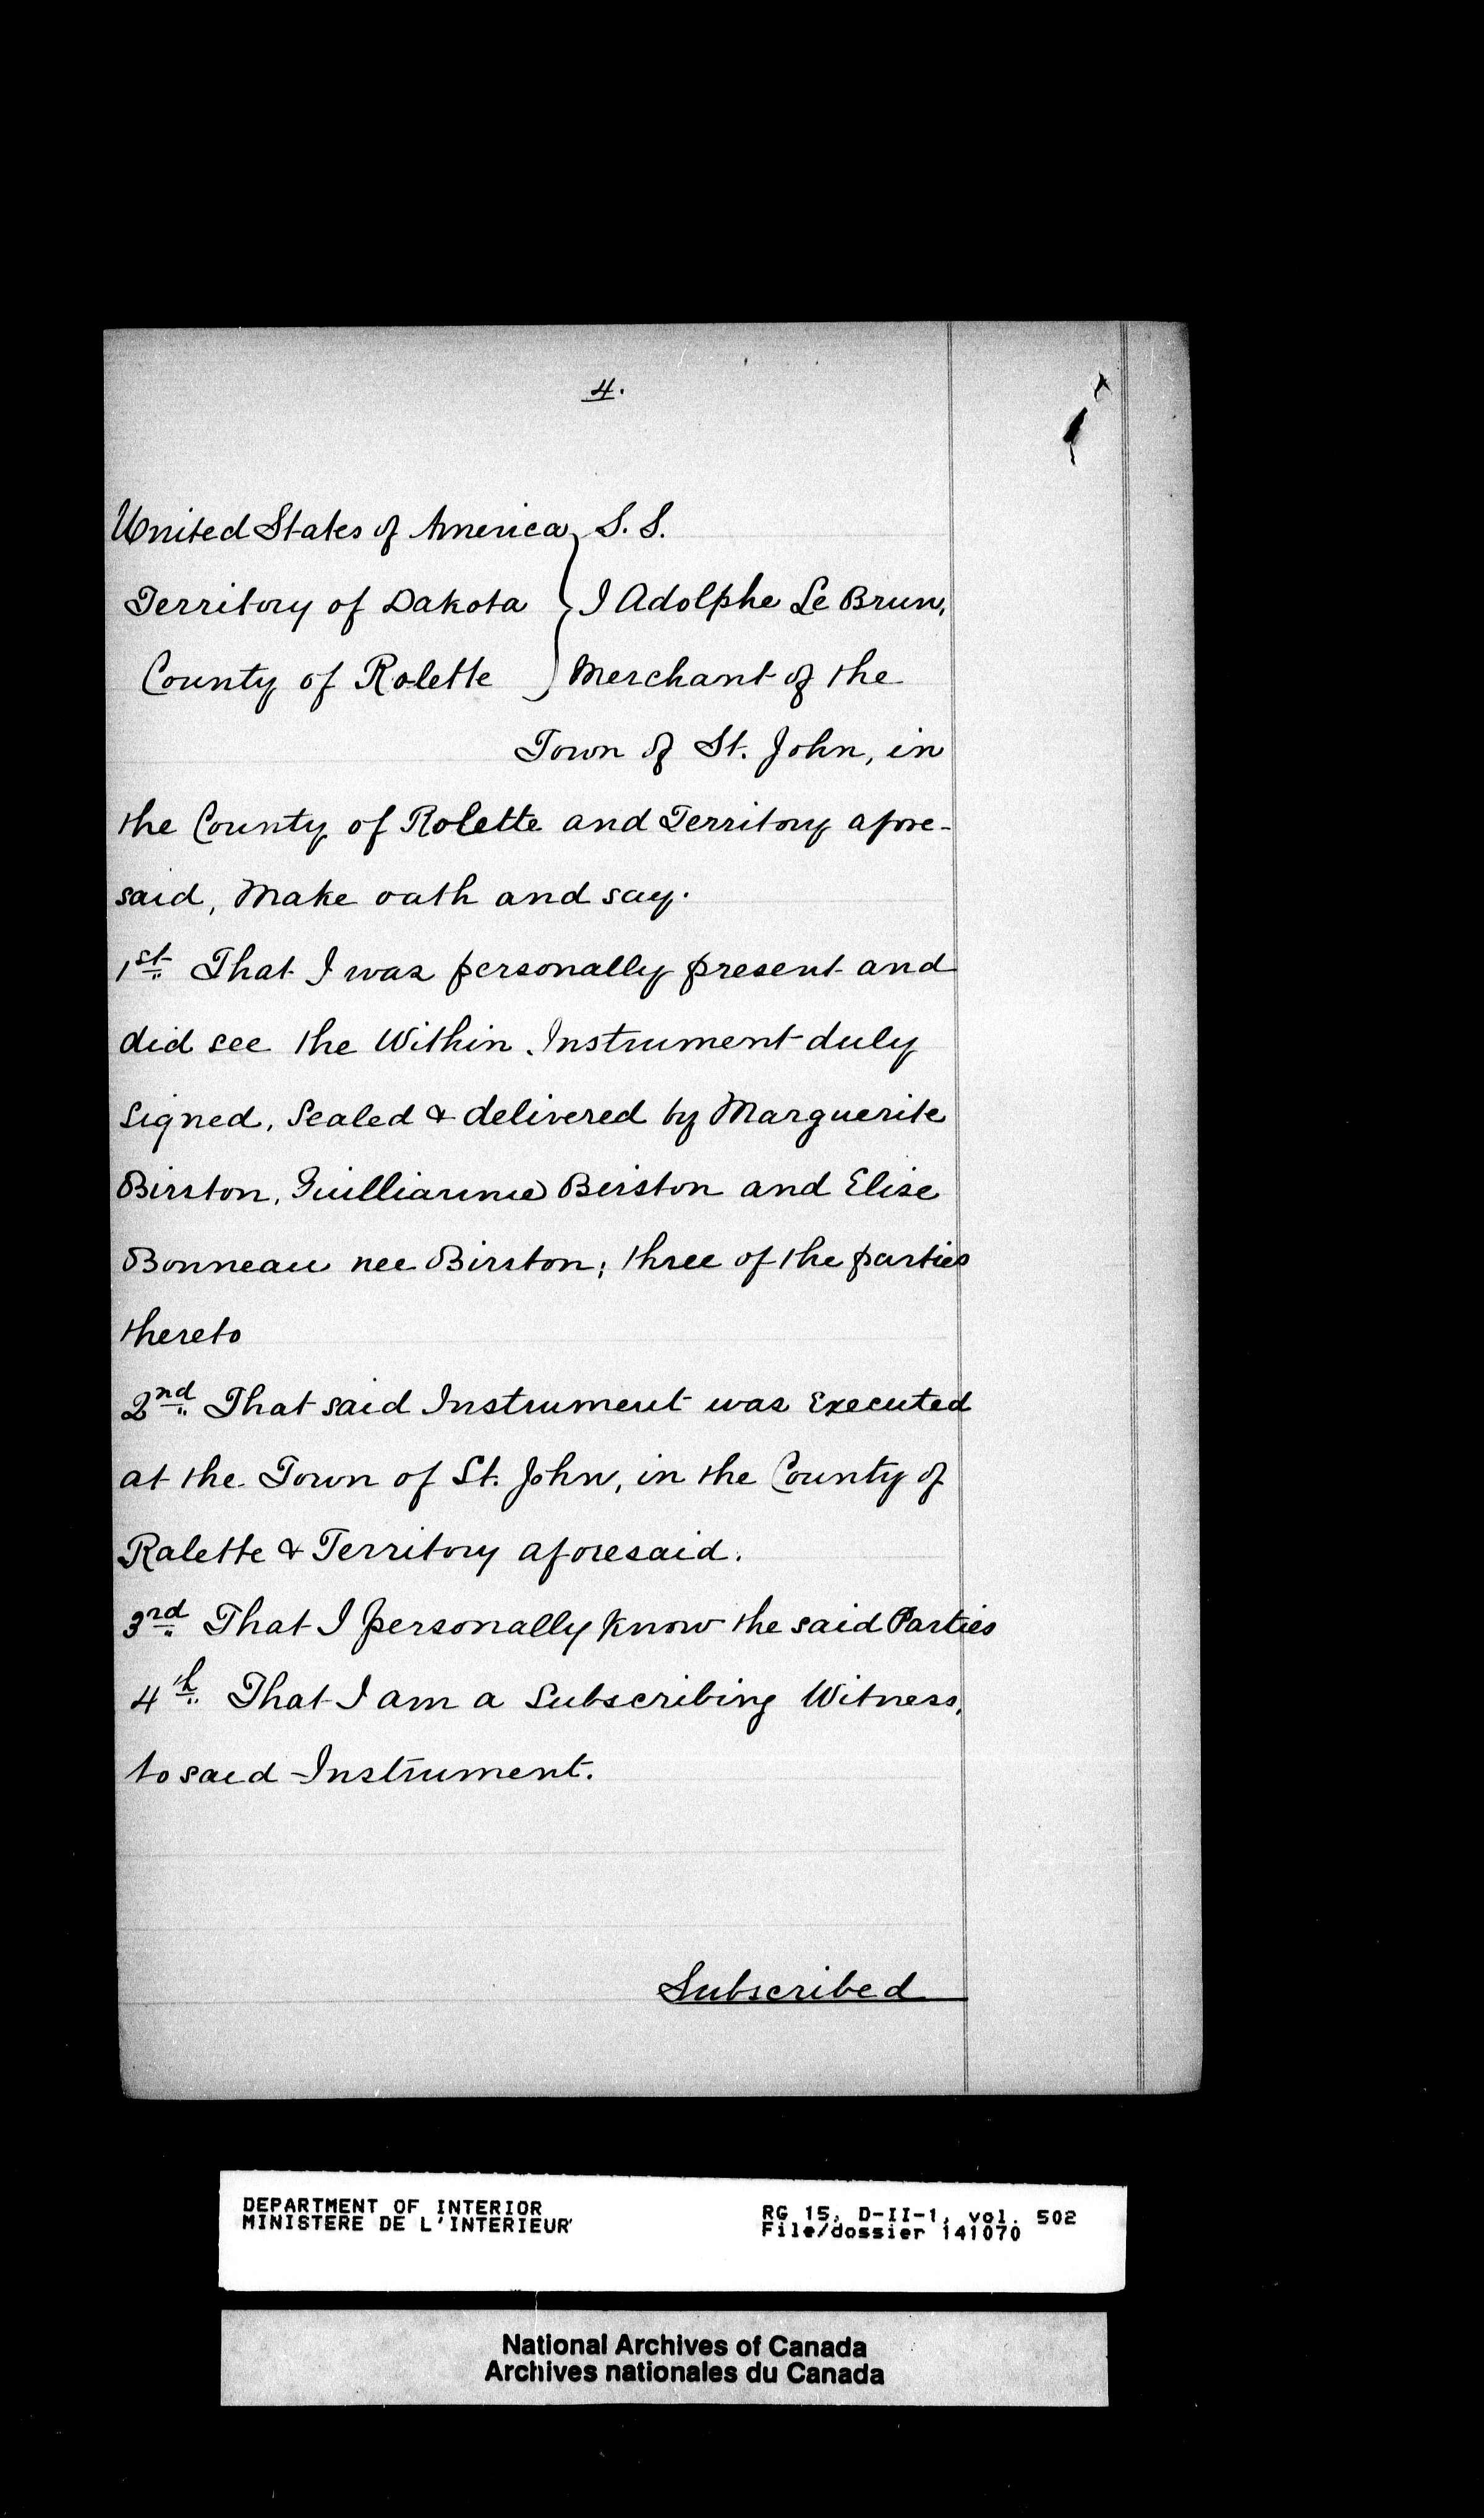 4.
United States of America } S. S.
Territory of Dakota } I Adolphe Le Brun,
County of Rolette } Merchant of the
Town of St. John, in
the County of Rolette and Territory afore-
said, Make oath and say.
1st. That I was personally present and
did see the Within Instrument duly
signed, Sealed & delivered by Marguerite
Birston, Guilliaume Birston and Elise
Bonneau nee Birston; three of the parties
thereto
2nd. That said Instrument was Executed
at the Town of St. John, in the County of
Ralette & Territory aforesaid.
3rd. That I personally know the said Parties
4th. That I am a Subscribing Witness,
to said Instrument.
Subscribed
DEPARTMENT OF INTERIOR
MINISTERE DE L'INTERIEUR
RG 15, D-II-1, vol. 502
File/dossier 141070
National Archives of Canada
Archives nationales du Canada